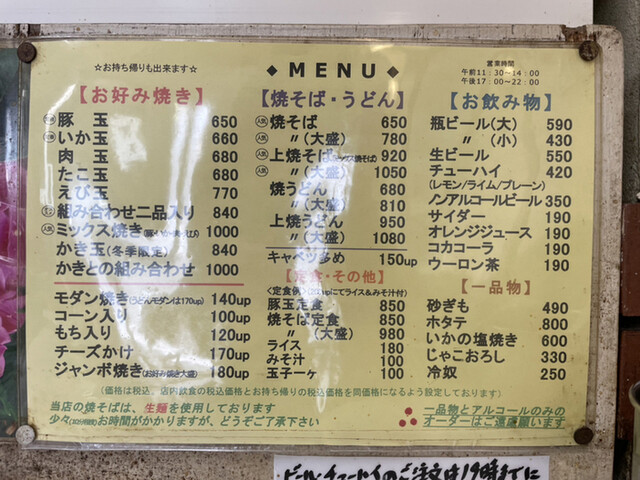 ☆お持ち帰りも出来ます☆
◆ MENU ◆
営業時間
午前11：30～14：00
午後17：00～22：00
【お好み焼き】
豚　玉 650
いか玉 660
肉　玉 680
たこ玉 680
えび玉 770
組み合わせ二品入り 840
ミックス焼き 1000
かき玉(冬季限定) 840
かきとの組み合わせ 1000
モダン焼き(うどんモダンは170up) 140up
コーン入り 100up
もち入り 120up
チーズかけ 170up
ジャンボ焼き(お好み焼き大盛) 180up
【焼そば・うどん】
人気 焼そば 650
人気 〃(大盛) 780
人気 上焼そば(ミックス焼そば) 920
人気 〃(大盛) 1050
焼うどん 680
〃(大盛) 810
上焼うどん 950
〃(大盛) 1080
キャベツ多め 150up
【定食・その他】
<定食例>(200upにてライス&みそ汁付)
豚玉定食 850
焼そば定食 850
〃(大盛) 980
ライス 180
みそ汁 100
玉子一ヶ 100
【お飲み物】
瓶ビール(大) 590
〃(小) 430
生ビール 550
チューハイ 420
(レモン/ライム/プレーン)
ノンアルコールビール 350
サイダー 190
オレンジジュース 190
コカコーラ 190
ウーロン茶 190
【一品物】
砂ぎも 490
ホタテ 800
いかの塩焼き 600
じゃこおろし 330
冷奴 250
(価格は税込、店内飲食の税込価格とお持ち帰りの税込価格を同価格になるよう設定しております)
当店の焼そばは、生麺を使用しております
少々お時間がかかりますが、どうぞご了承下さい
一品物とアルコールのみの
オーダーはご遠慮願います
ビール・チューハイのご注文は19時までに